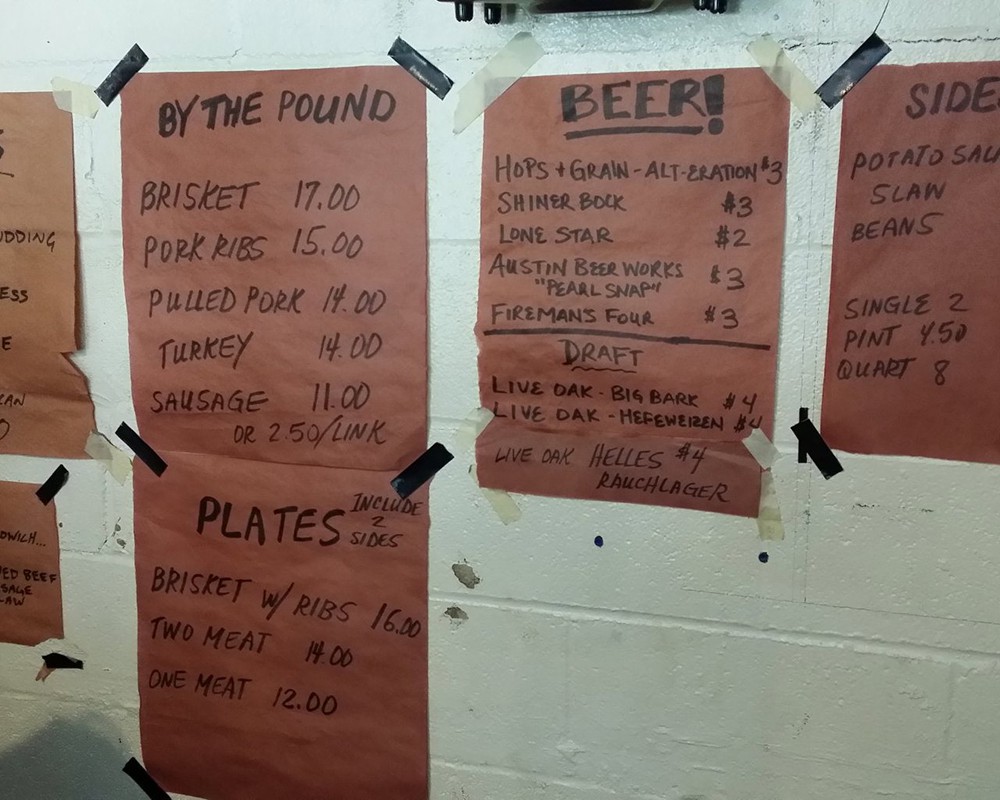 ESS
E
BY THE POUND
BRISKET 17.00
PORK RIBS 15.00
PULLED PORK 14.00
TURKEY 14.00
SAUSAGE 11.00
OR 2.50/LINK
PLATES INCLUDE 2 SIDES
BRISKET W/ RIBS 16.00
TWO MEAT 14.00
ONE MEAT 12.00
BEER!
HOPS + GRAIN - ALT-ERATION $3
SHINER BOCK $3
LONE STAR $2
AUSTIN BEER WORKS $3
"PEARL SNAP"
FIREMANS FOUR $3
DRAFT
LIVE OAK - BIG BARK $4
LIVE OAK - HEFEWEIZEN $4
LIVE OAK HELLES $4
RAUCHLAGER
SIDE
POTATO SAL
SLAW
BEANS
SINGLE 2
PINT 4.50
QUART 8